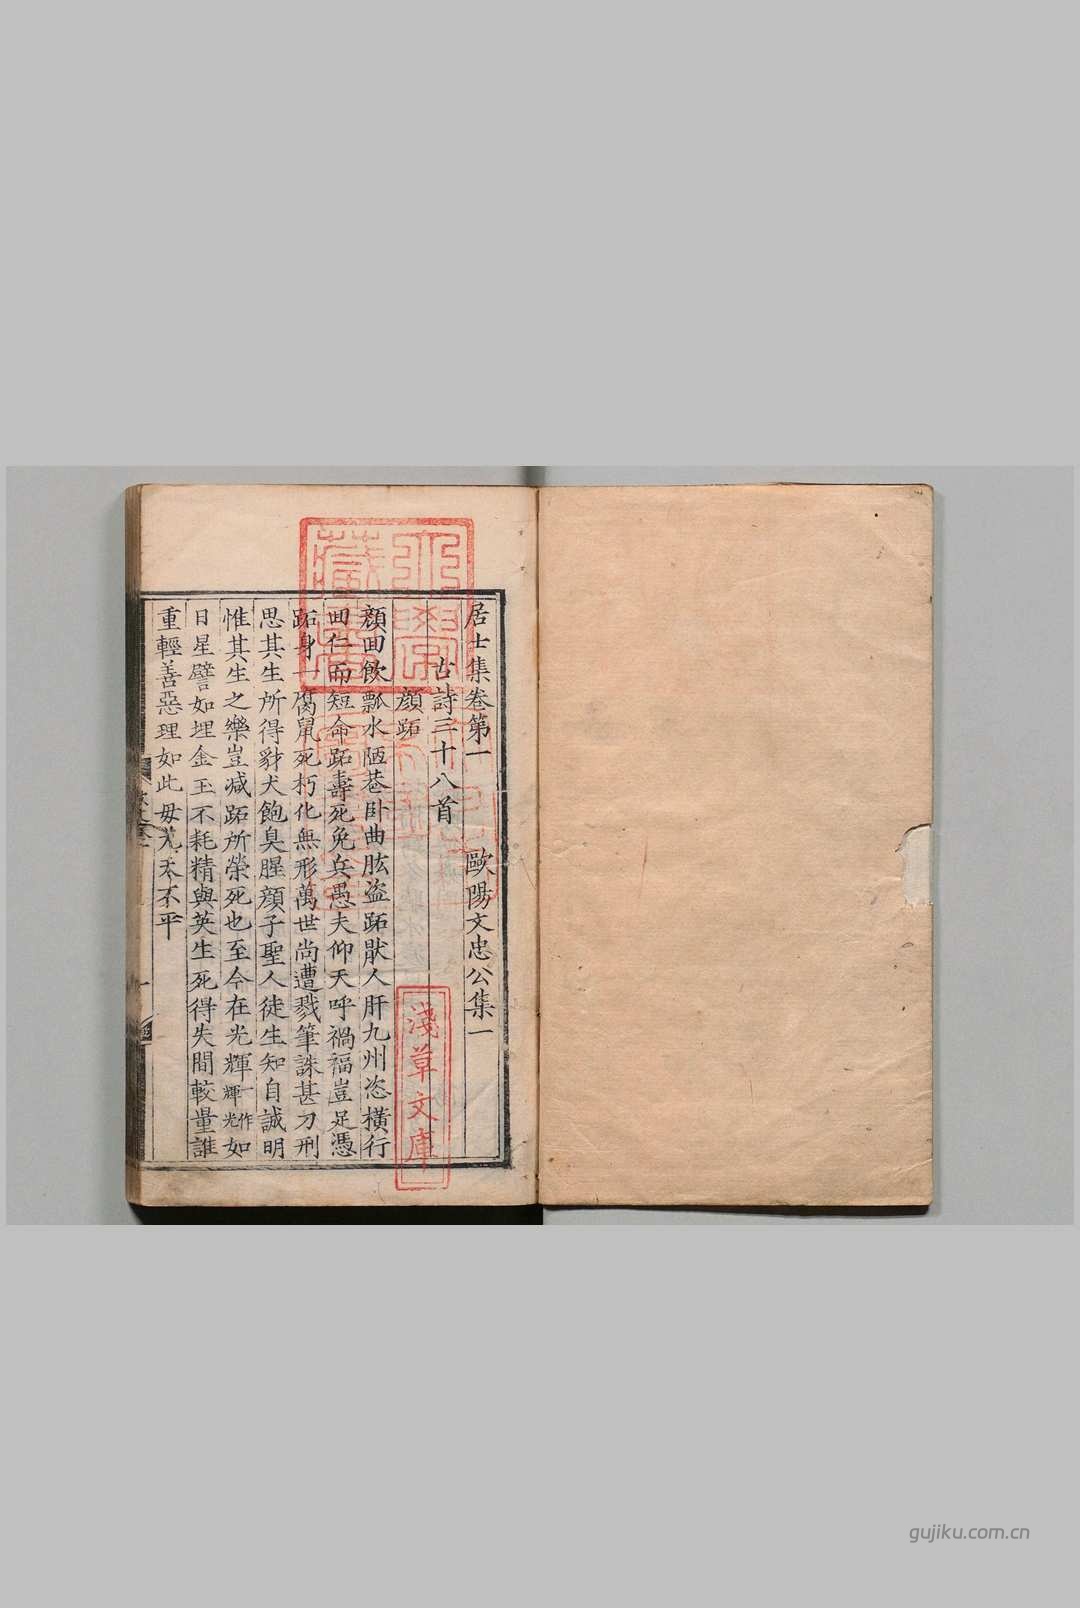 居士集卷第一　歐陽文忠公集一
古詩三十八首
顔跖
顔回飲瓢水陋巷卧曲肱盗跖猒人肝九州恣橫行
回仁而短命跖壽死免兵愚夫仰天呼禍福豈足憑
跖身一腐鼠死朽化無形萬世尚遭戮筆誅甚刀刑
思其生所得豺犬飽臭腥顔子聖人徒生知自誠明
惟其生之樂豈减跖所榮死也至今在光輝一作輝光如
日星譬如埋金玉不耗精與英生死得失間較量誰
重輕善惡理如此毋尤天不平
淺草文庫
gujiku.com.cn